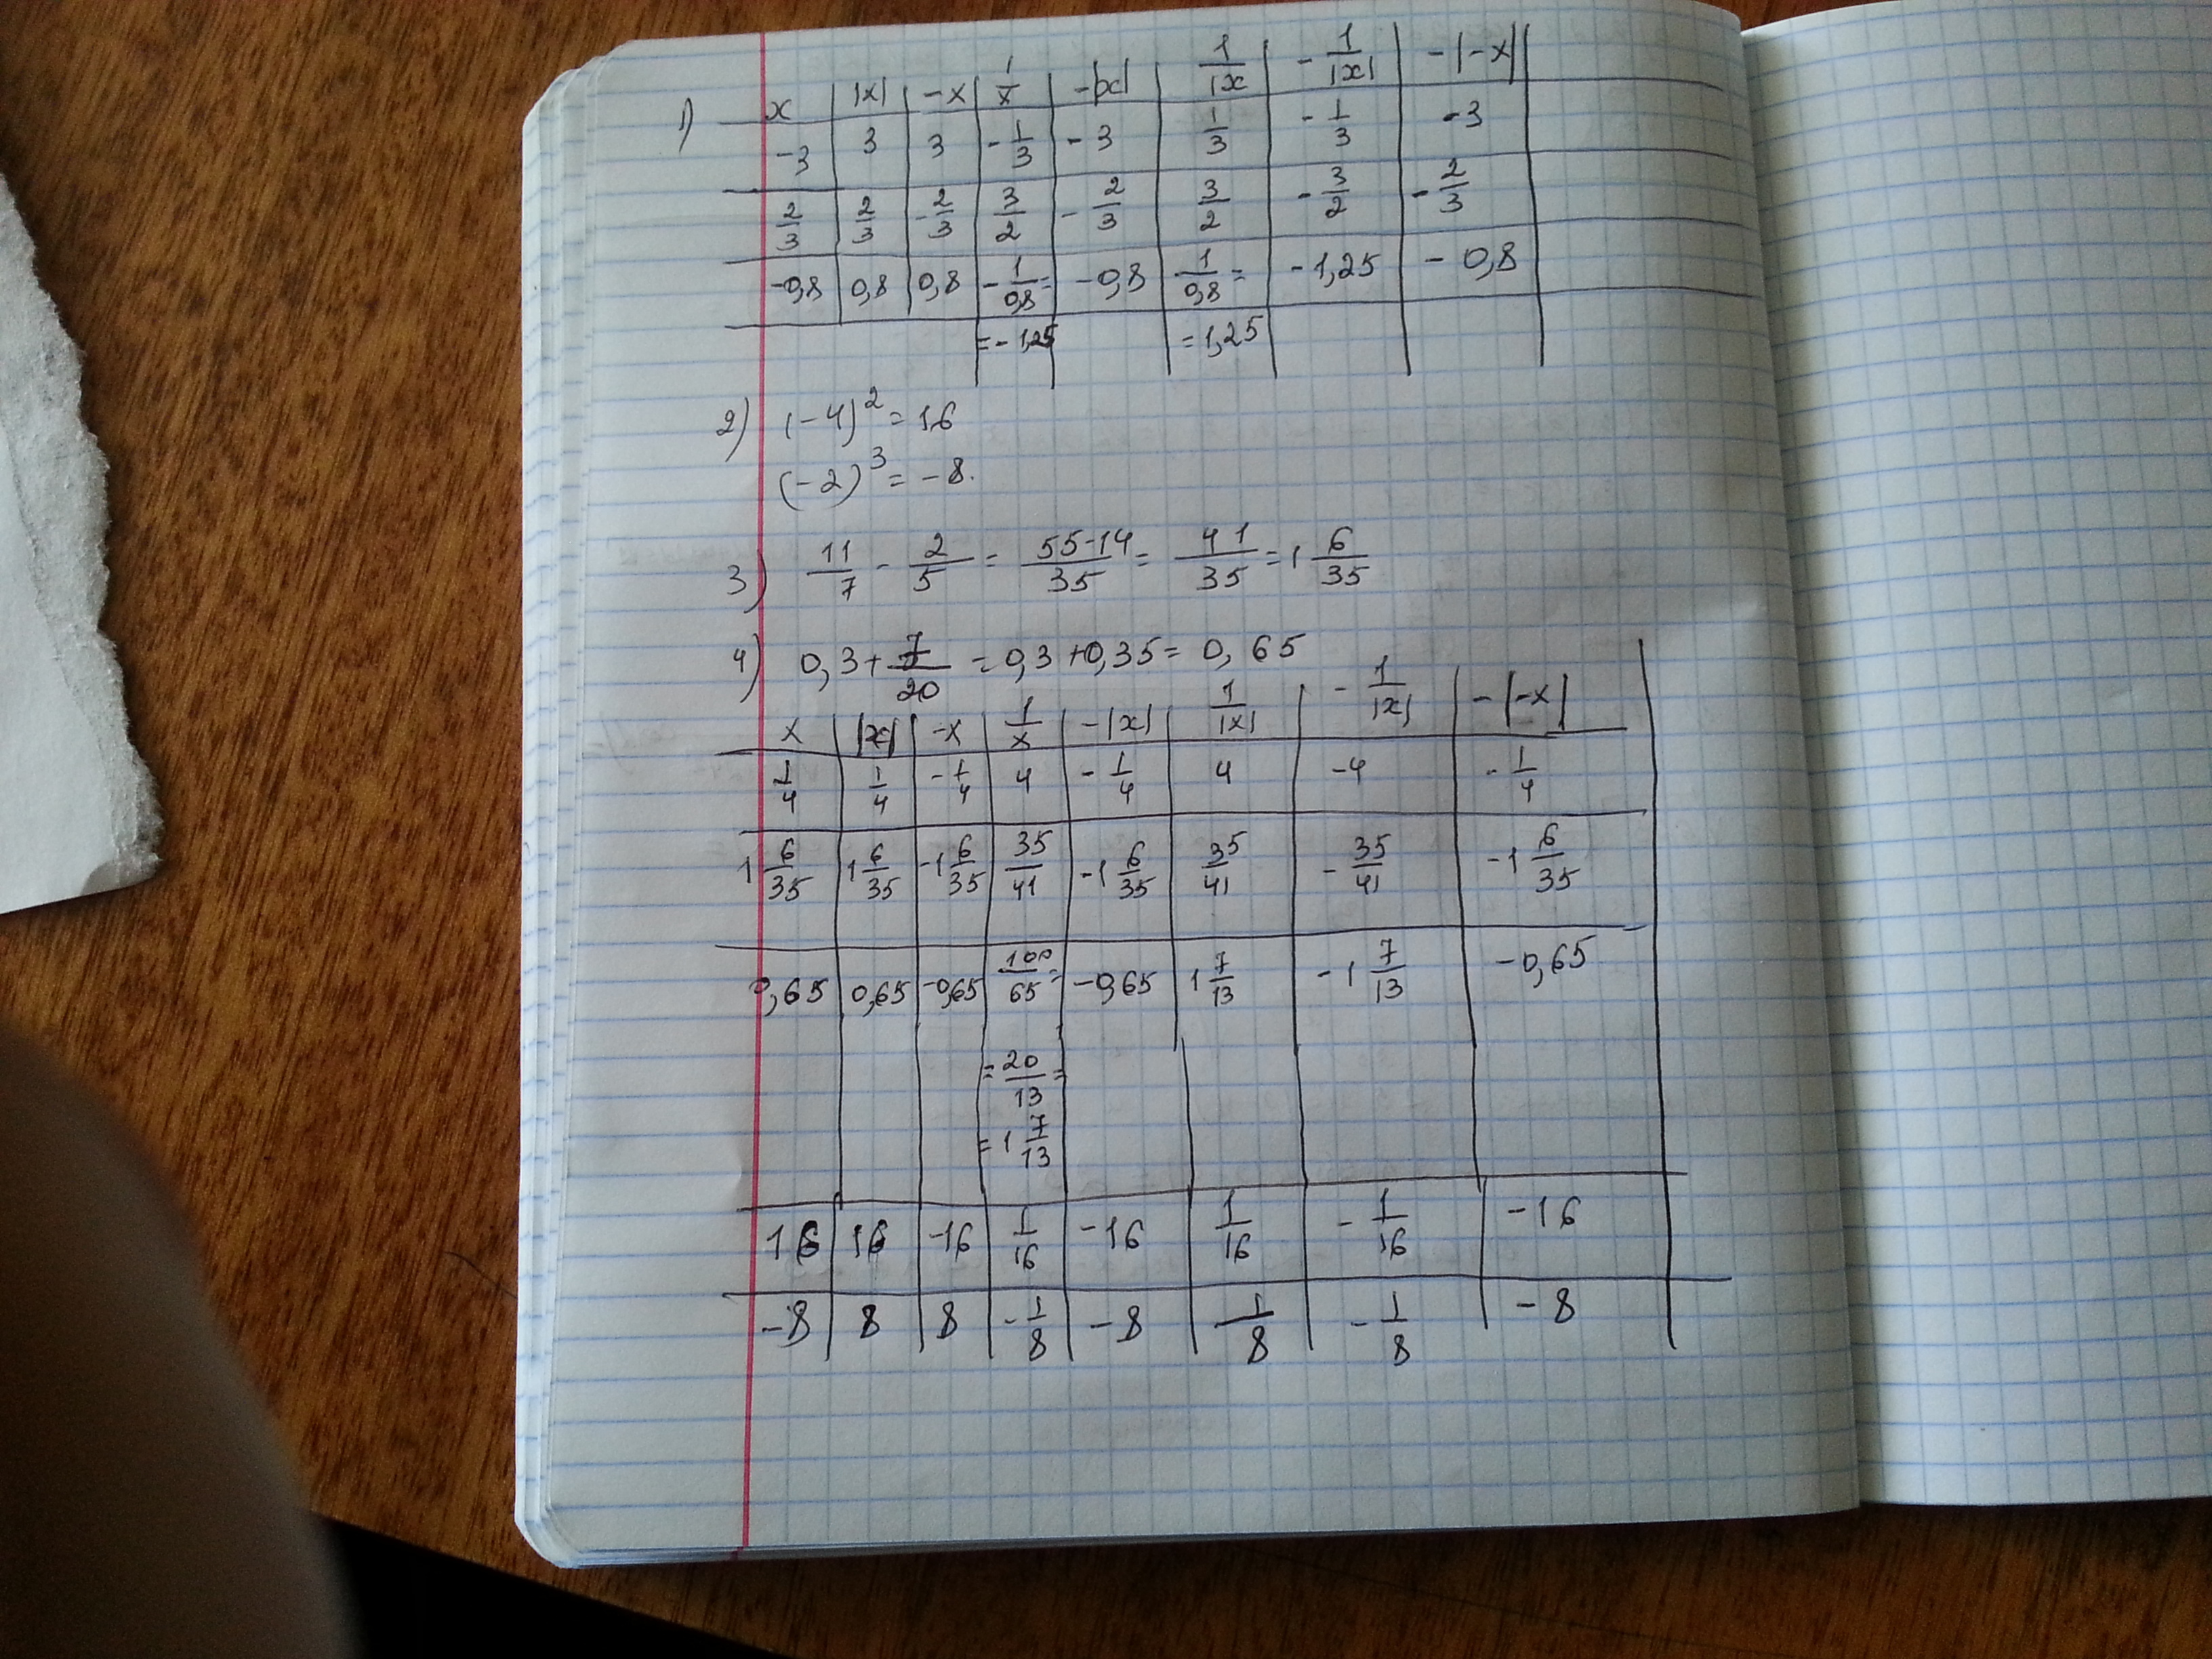 1) x | |x| | -x | 1/x | -|x| | 1/|x | -1/|x| | -|-x|
-3 | 3 | 3 | -1/3 | -3 | 1/3 | -1/3 | -3
2/3 | 2/3 | -2/3 | 3/2 | -2/3 | 3/2 | -3/2 | -2/3
-0,8 | 0,8 | 0,8 | -1/0,8= | -0,8 | 1/0,8= | -1,25 | -0,8
=-1,25 | =1,25
2) (-4)² = 16
(-2)³ = -8.
3) 11/7 - 2/5 = 55-14/35 = 41/35 = 1 6/35
4) 0,3+7/20 = 0,3+0,35= 0,65
x | |x| | -x | 1/x | -|x| | 1/|x| | -1/|x| | -|-x|
1/4 | 1/4 | -1/4 | 4 | -1/4 | 4 | -4 | -1/4
1 6/35 | 1 6/35 | -1 6/35 | 35/41 | -1 6/35 | 35/41 | -35/41 | -1 6/35
0,65 | 0,65 | -0,65 | 100/65= | -0,65 | 1 7/13 | -1 7/13 | -0,65
=20/13=
=1 7/13
16 | 16 | -16 | 1/16 | -16 | 1/16 | -1/16 | -16
-8 | 8 | 8 | -1/8 | -8 | 1/8 | -1/8 | -8